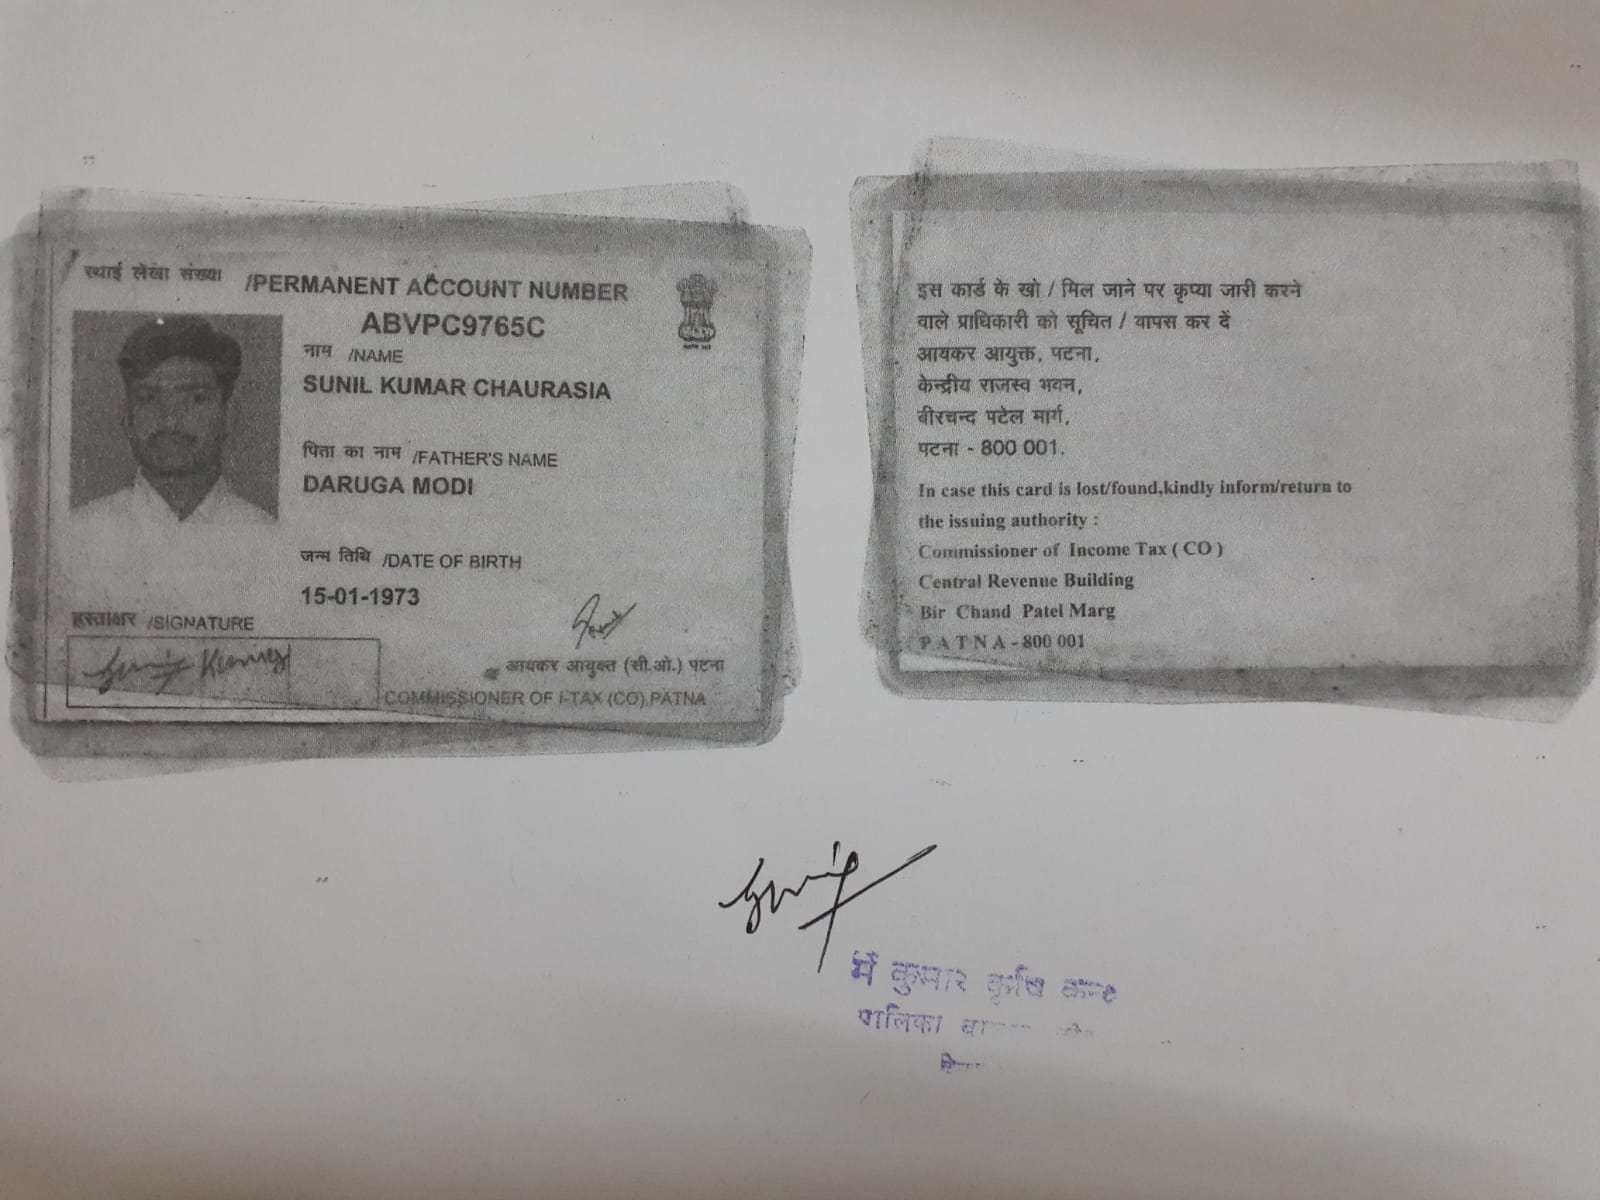 स्थाई लेखा संख्या /PERMANENT ACCOUNT NUMBER
ABVPC9765C
नाम /NAME
SUNIL KUMAR CHAURASIA
पिता का नाम /FATHER'S NAME
DARUGA MODI
जन्म तिथि /DATE OF BIRTH
15-01-1973
हस्ताक्षर /SIGNATURE
Sunil Kumar
आयकर आयुक्त (सी.ओ.) पटना
COMMISSIONER OF I-TAX (CO),PATNA
इस कार्ड के खो / मिल जाने पर कृप्या जारी करने
वाले प्राधिकारी को सूचित / वापस कर दें
आयकर आयुक्त, पटना,
केन्द्रीय राजस्व भवन,
बीरचन्द पटेल मार्ग,
पटना - 800 001.
In case this card is lost/found,kindly inform/return to
the issuing authority :
Commissioner of Income Tax ( CO )
Central Revenue Building
Bir Chand Patel Marg
P A T N A - 800 001
Sunil
में कुमार कृषि
पालिका